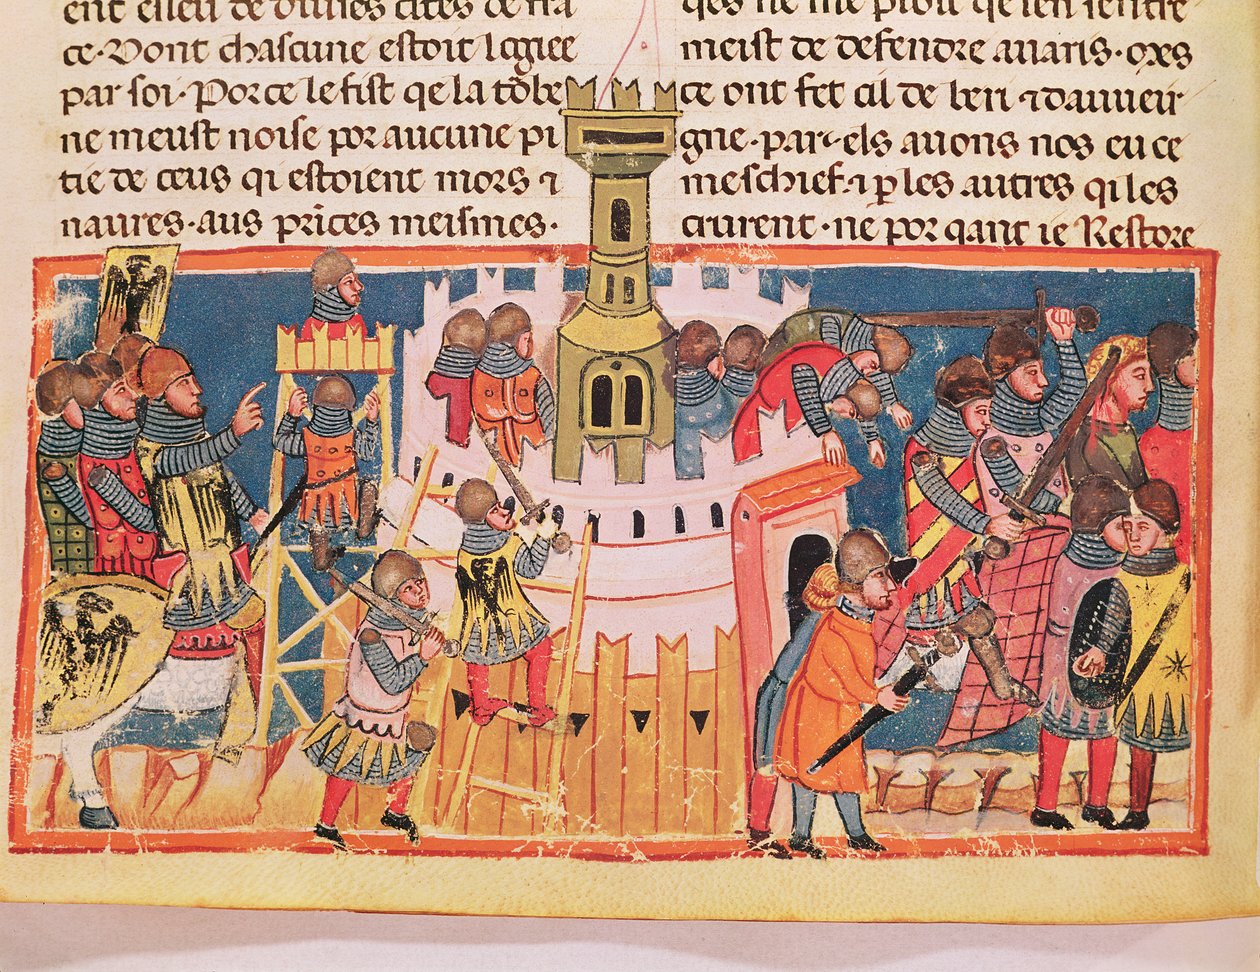 ent elleu de diuıses cites de fra
ce·Dont chascune estoit logiee
par soi·Por ce le fist qe la tōbe
ne meust noise por aucune pi
tie de ceus qi estoient mors ⁊
naures·aus prīces meismes·
qes ne me ploit qe ien ientre
meist de defendre auaris·ores
ce ont fet cil de beri ⁊ dauueir
gne·par els auons nos eu ce
meschief·⁊ ꝑ les autres qi les
crurent·ne por qant ie Restore